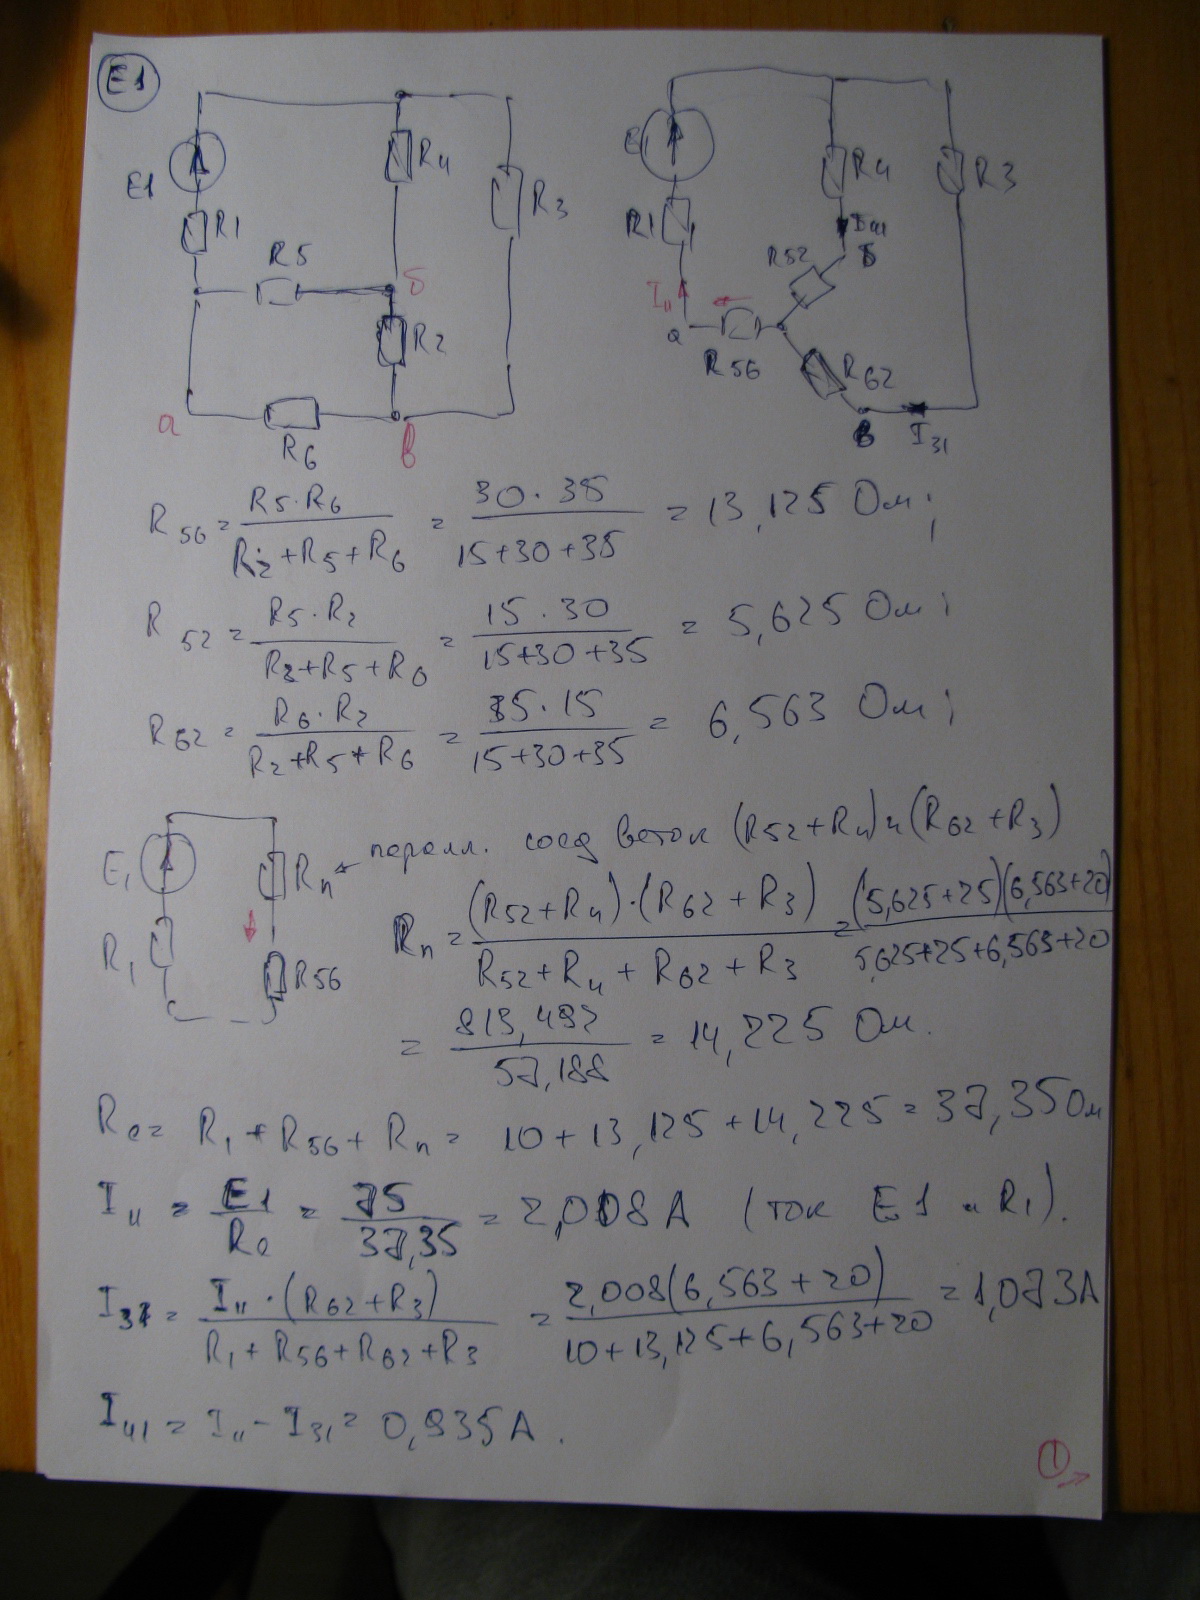 E1
E1 R1 R4 R3
R5 б
R2
а R6 в
E1 R1 R4 R3
I41
R52 б
I11
а R56 R62
в I31
R56 = R5·R6 / R2+R5+R6 = 30·35 / 15+30+35 = 13,125 Ом;
R52 = R5·R2 / R2+R5+R6 = 15·30 / 15+30+35 = 5,625 Ом;
R62 = R6·R2 / R2+R5+R6 = 35·15 / 15+30+35 = 6,563 Ом;
E1 R1 Rп R56
паралл. соед веток (R52+R4) и (R62+R3)
Rп = (R52+R4)·(R62+R3) / R52+R4+R62+R3 = (5,625+25)(6,563+20) / 5,625+25+6,563+20
= 813,492 / 57,188 = 14,225 Ом.
Rе = R1 + R56 + Rп = 10+13,125+14,225 = 37,35 Ом
I11 = E1 / Rе = 75 / 37,35 = 2,008 A (ток E1 и R1).
I31 = I11·(R62+R3) / R1+R56+R62+R3 = 2,008(6,563+20) / 10+13,125+6,563+20 = 1,073 A
I41 = I11 - I31 = 0,935 A.
1